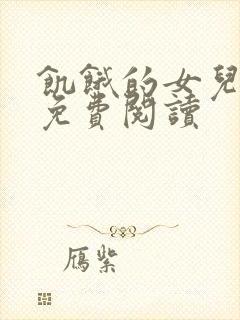 飢餓的女兒
免費閱讀
鴈紫